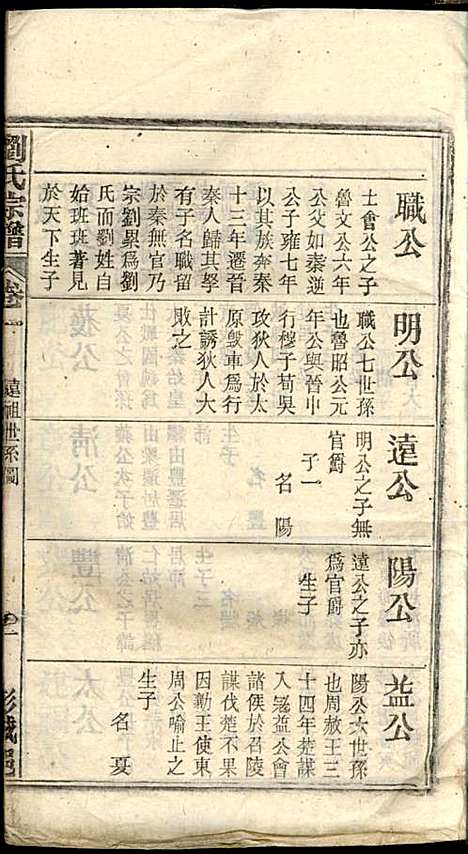 職公
士會公之子
魯文公六年
公父如秦逆
公子雍七年
以其族奔秦
十三年遷晉
秦人歸其孥
有子名職留
於秦無官乃
宗劉累爲劉
氏而劉姓自
始班班著見
於天下生子
明公
職公七世孫
也魯昭公元
年公與晉中
行穆子荀吳
攻狄人於太
原毀車爲行
計誘狄人大
敗之
遠公
明公之子無
官爵
子一
名陽
陽公
遠公之子亦
爲官爵
生子
益公
陽公六世孫
也周赧王三
十四年楚謀
入寇益公會
諸侯於召陵
謀伐楚不果
因勤王使東
周公喻止之
生子
名夏
劉氏宗譜
卷一
遠祖世系圖
彭城邑